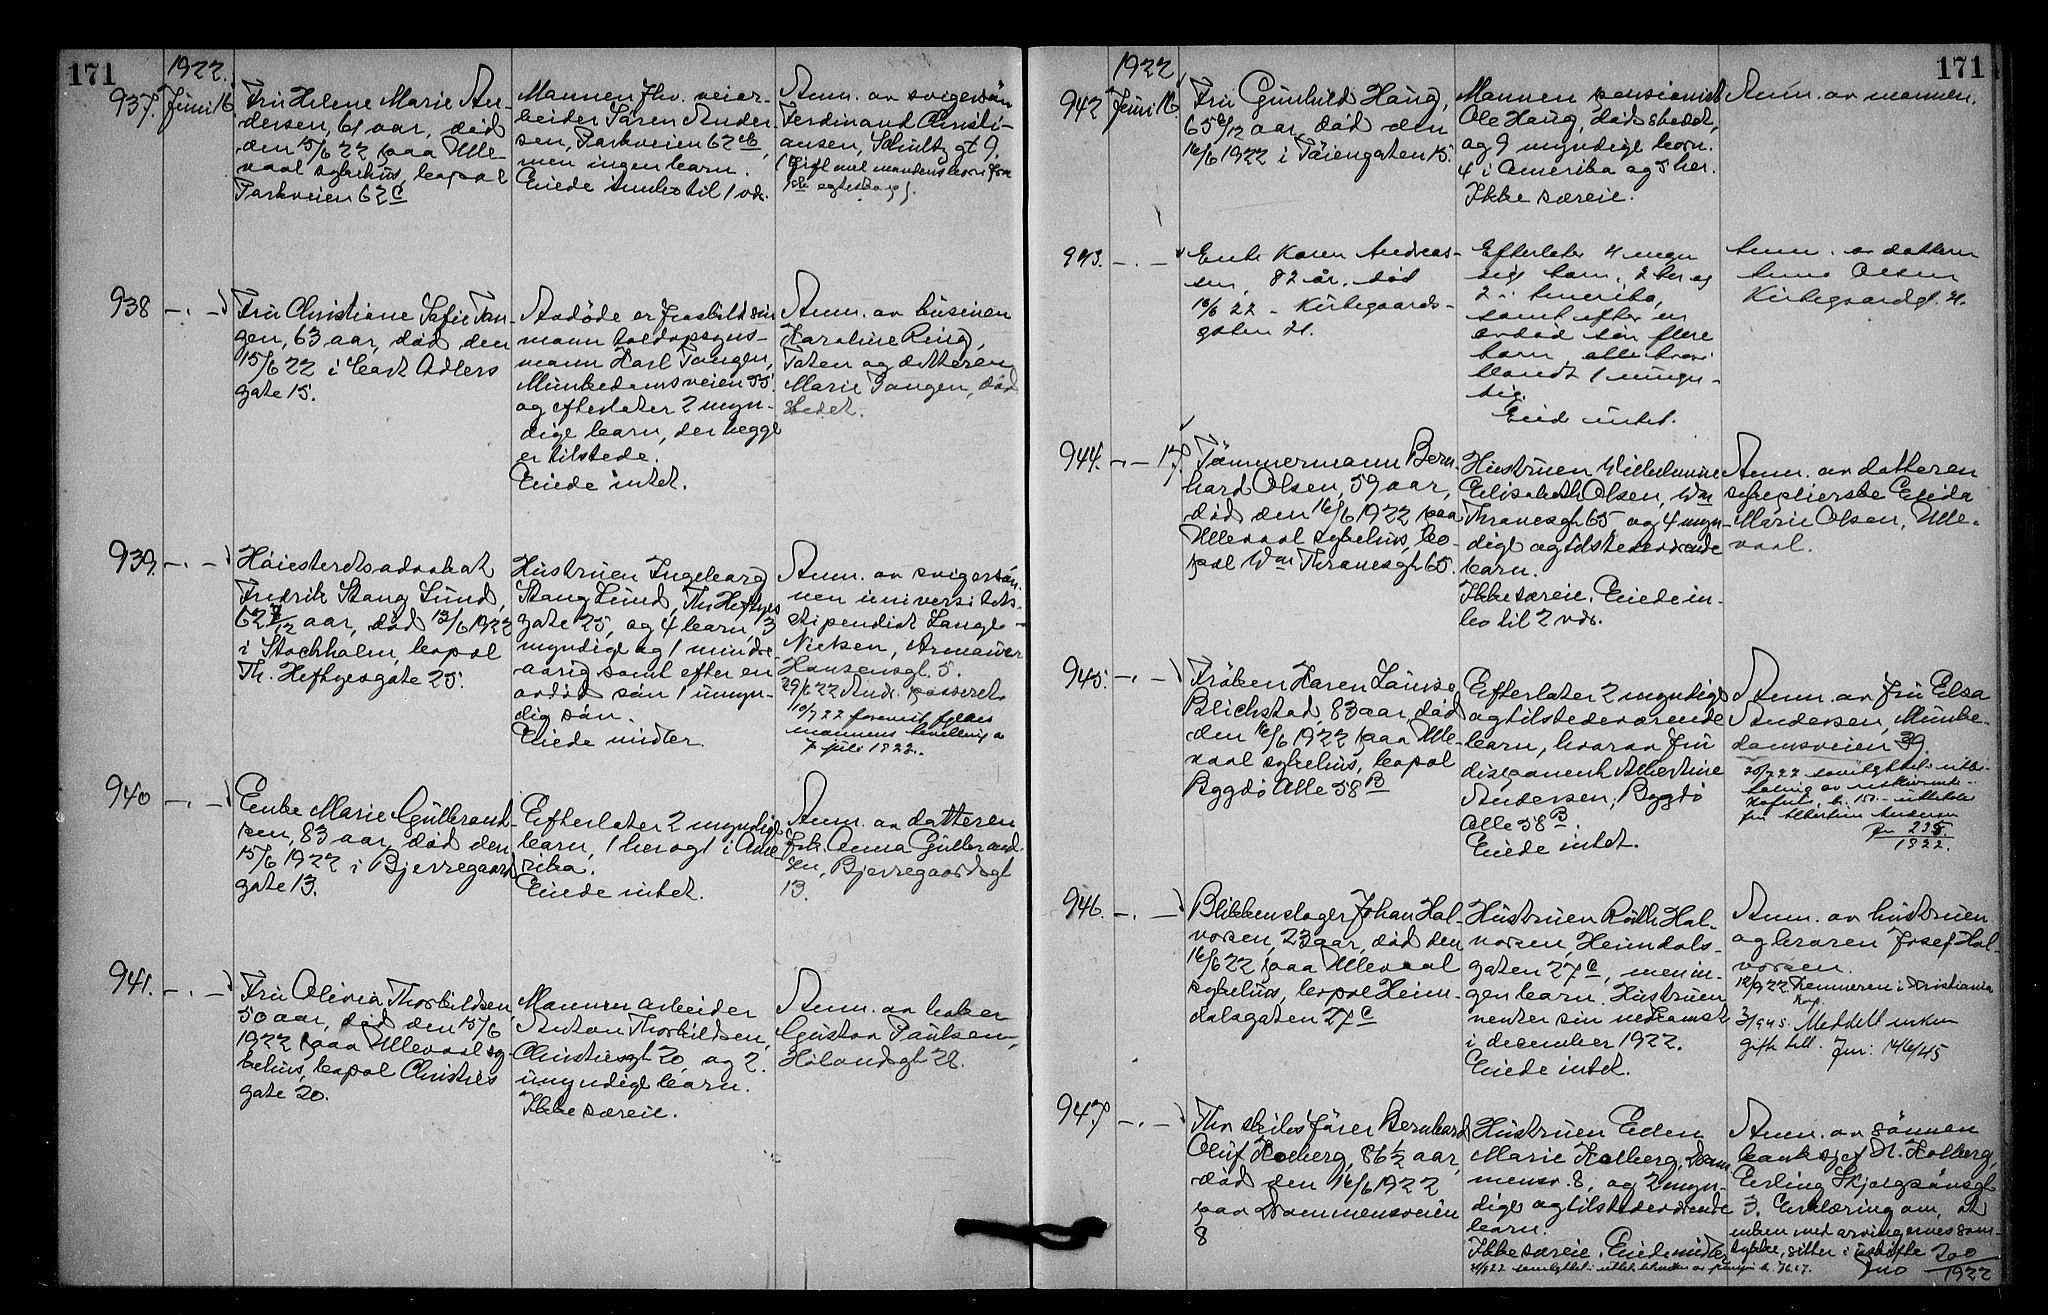 171
1922.
937. Juni 16.
Fru Helene Marie An-
dersen, 61 aar, død
den 15/6 22 paa Ulle-
vaal sykehus, bopæl
Parkveien 62 c
Manden fhv. veiar-
beider Søren Ander-
sen, Parkveien 62 c,
men ingen barn.
Eiede indbo til 1 vær.
Anm. av svigersøn
Ferdinand Christi-
ansen, Schultz gt 9.
938 -.-
Fru Christiane Sofie Tan-
gen, 63 aar, død den
15/6 22 i Carl Adlers
gate 15.
Avdøde er fraskilt sin
mann toldopsyns-
mann Karl Tangen,
Munkedamsveien 55
og efterlater 2 myn-
dige barn, der begge
er tilstede.
Eiede intet.
Anm. av
Karoline Ring,
Toten og datteren
Marie Tangen, død
stedet.
939. -.-
Høiesteretsadvokat
Fredrik Stang Lund,
62 7/12 aar, død 13/6 1922
i Stockholm, bopæl
Th. Heftyesgate 25.
Hustruen Ingeborg
Stang Lund, Th. Heftyes
gate 25, og 4 barn, 3
myndige og 1 mindre-
aarig samt efter en
avdød søn 1 umyn-
dig søn.
Eiede midler
Anm. av svigersøn-
nen universitets-
stipendiat Lange-
Nielsen,
Hansensgt. 5.
29/6 22
10/7 22
7 juli 1922.
940 -.-
Enke Marie Gulbrand-
sen, 83 aar, død den
15/6 1922 i Bjerregaards
gate 13.
Efterlater 2 myndige
barn, 1 her og 1 i Ame
rika.
Eiede intet.
Anm. av datteren
frk. Anna Gulbrand-
sen, Bjerregaardsgt
13.
941. -.-
Fru Olivia Thorkildsen
50 aar, død den 15/6
1922 paa Ullevaal sy
kehus, bopæl Christies
gate 20.
Mannen arbeider
Anton Thorkildsen,
Christiesgt 20, og 2
umyndige barn.
Ikke særeie.
Anm. av baker
Gustav Paulsen,
Hølandsgt 28.
171
1922
942 Juni 16.
Fru Gunhild Haug,
65 aar, død den
16/6 1922 i Tøiengaten 15.
Mannen pensionist
Ole Haug, dødsstedet,
og 9 myndige barn.
4 i Amerika og 5 her.
Ikke særeie.
Anm. av mannen.
943. -.-
Enke Karen Andreas-
sen, 82 år, død
16/6 22 - Kirkegaards-
gaten 21.
Efterlater 4 myn
dige barn, 2 her og
2 i Amerika,
samt efter en
avdød søn flere
barn, alle hvori
blandt 1 umyn-
dig.
Eiede intet.
Anm. av datteren
Anna Olsen
Kirkegaardgt. 21.
944. - - 17.
Tømmermann Bern-
hard Olsen, 59 aar,
død den 16/6 1922 paa
Ullevaal sykehus, bo-
pæl Wm Thranesgt 65.
Hustruen Wilhelmine
Elisabeth Olsen, Wm
Thranesgt 65, og 4 myn-
dige og tilstedeværende
barn.
Ikke særeie. Eiede in-
bo til 2 vær.
Anm. av datteren
sykepleierske
Marie Olsen, Ulle-
vaal.
945. -.-
Frøken Karen Lauise
Blichstad, 83 aar, død
den 16/6 1922 paa Ulle-
vaal sykehus, bopæl
Bygdø Alle 58 B
Efterlater 2 myndige
og tilstedeværende
barn, hvorav fru
disponent Albertine
Andersen, Bygdø
Alle 58 B
Eiede intet.
Anm. av fru Elsa
Andersen, Munke-
damsveien 39.
1922.
946. -.-
Blikkenslager Johan Hal-
vorsen, 23 aar, død den
16/6 22 paa Ullevaal
sykehus, bopæl Heim-
dalsgaten 27 c
Hustruen Ruth Hal-
vorsen, Heimdals-
gaten 27 c, men in-
gen barn. Hustruen
venter sin nedkomst
i december 1922.
Eiede intet.
Anm. av hustruen
og broren Josef Hal-
vorsen.
12/9 22 Kemneren i Kristiania
2/9 45. Meddelt enken
gifte till. Jnr: 146/45
947. -.-
Bernhard
Oluf Kolberg, 86 1/2 aar,
død den 16/6 1922
paa Drammensveien
8
Hustruen Eden
Marie Kolberg, Dram
mensv. 8, og 2 myn-
dige og tilstedeværende
barn.
Ikke særeie. Eiede midler
Anm. av sønnen
banksjef N. Kolberg,
Erling Skjalgsønsgt
3. Erklæring om, at
enken med arvingernes sam-
tykke, sitter i uskifte 200
Jno 1922